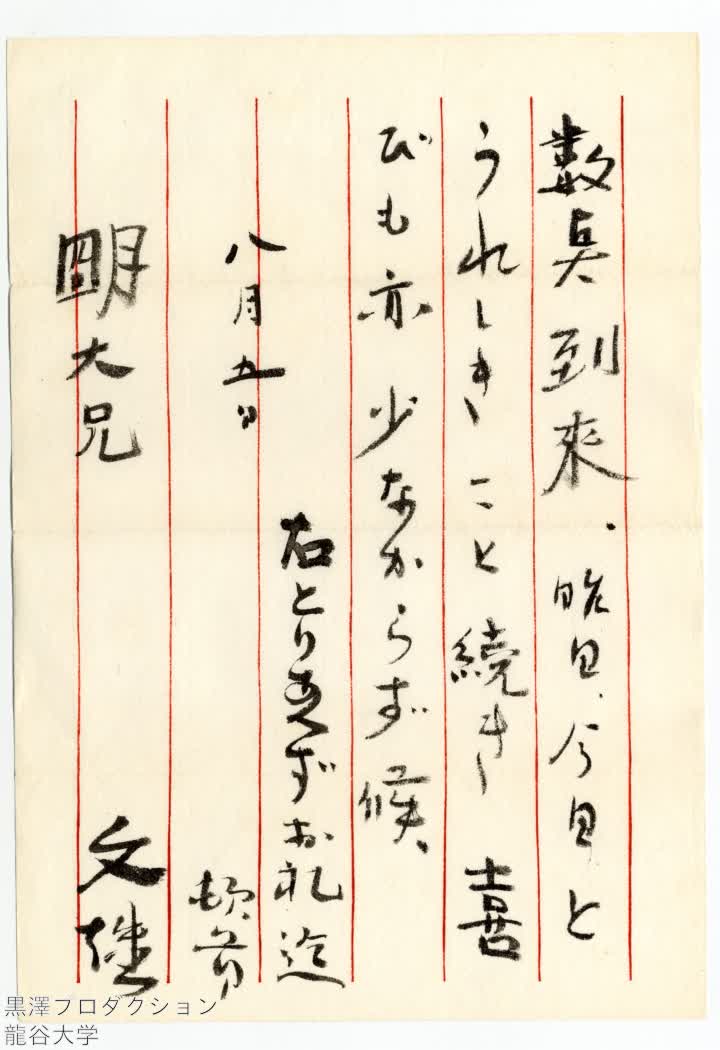 数旲到来、昨日、今日と
うれしきこと続き 喜
びも亦少なからず候、
右とりあえずお礼迄
八月五日
頓首
文雄
明大兄
黒澤プロダクション
龍谷大学